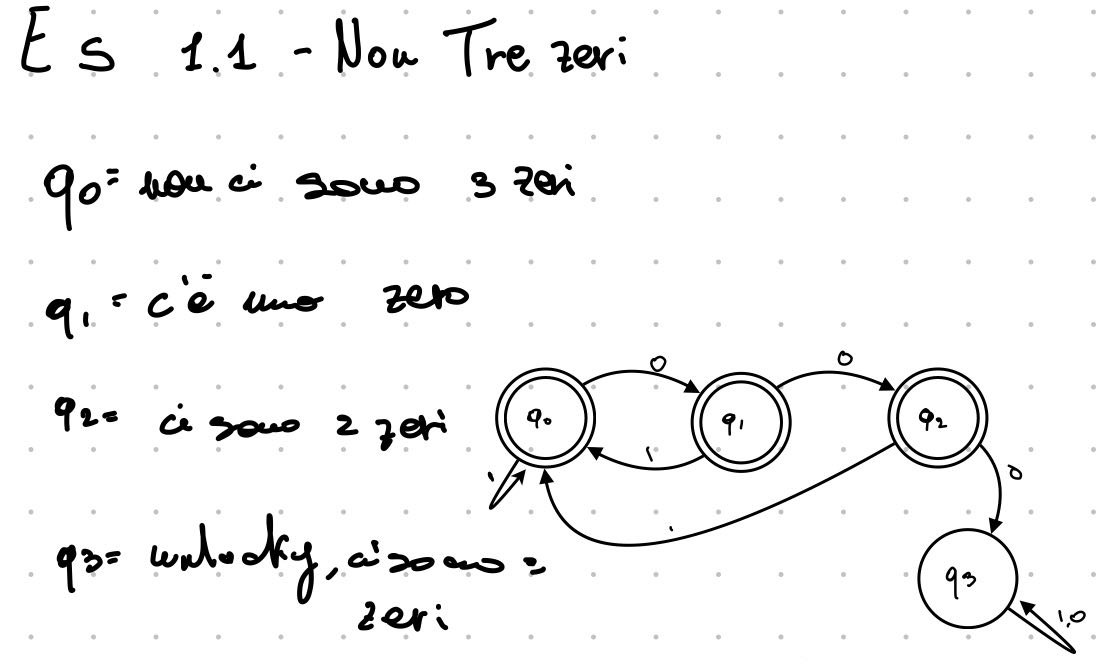 Es 1.1 - Non Tre zeri
q0= non ci sono 3 zeri
q1= c'è uno zero
q2= ci sono 2 zeri
q3= unlucky, ci sono =
zeri
0
0
q0
q1
q2
1
1
0
q3
1,0